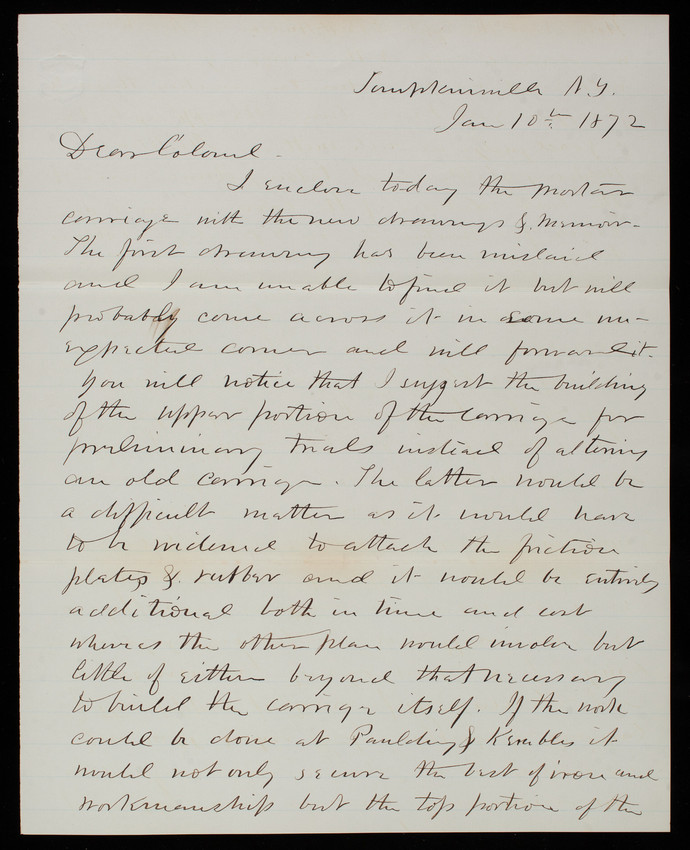 Tompkinsville N.Y.
Jan 10th 1872
Dear Colonel -
I enclose today the mortar
carriage with the new drawings & memoir -
The first drawing has been mislaid
and I am unable to find it but will
probably come across it in some un-
expected corner and will forward it.
You will notice that I suggest the building
of the upper portion of the carriage for
preliminary trials instead of altering
an old carriage. The latter would be
a difficult matter as it would have
to be widened to attach the friction
plates & rubber and it would be entirely
additional both in time and cost
whereas the other plan would involve but
little of either beyond that necessary
to build the carriage itself. If the work
could be done at Paulding & Kembles it
would not only secure the best of iron and
workmanship but the top portion of the